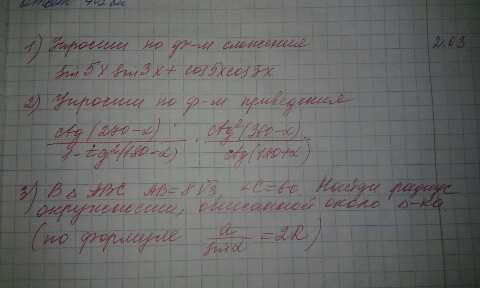 1) Упрости по ф-м сложения 2.03
sin5x sin3x + cos5xcos3x
2) Упрости по ф-м приведения
ctg(270-α) / 1-tg²(180-α) · ctg²(360-α) / ctg(180+α)
3) В △ ABC AB=8√3, ∠C=60. Найди радиус
окружности, описанной около △-ка
(по формуле a / sinα = 2R)